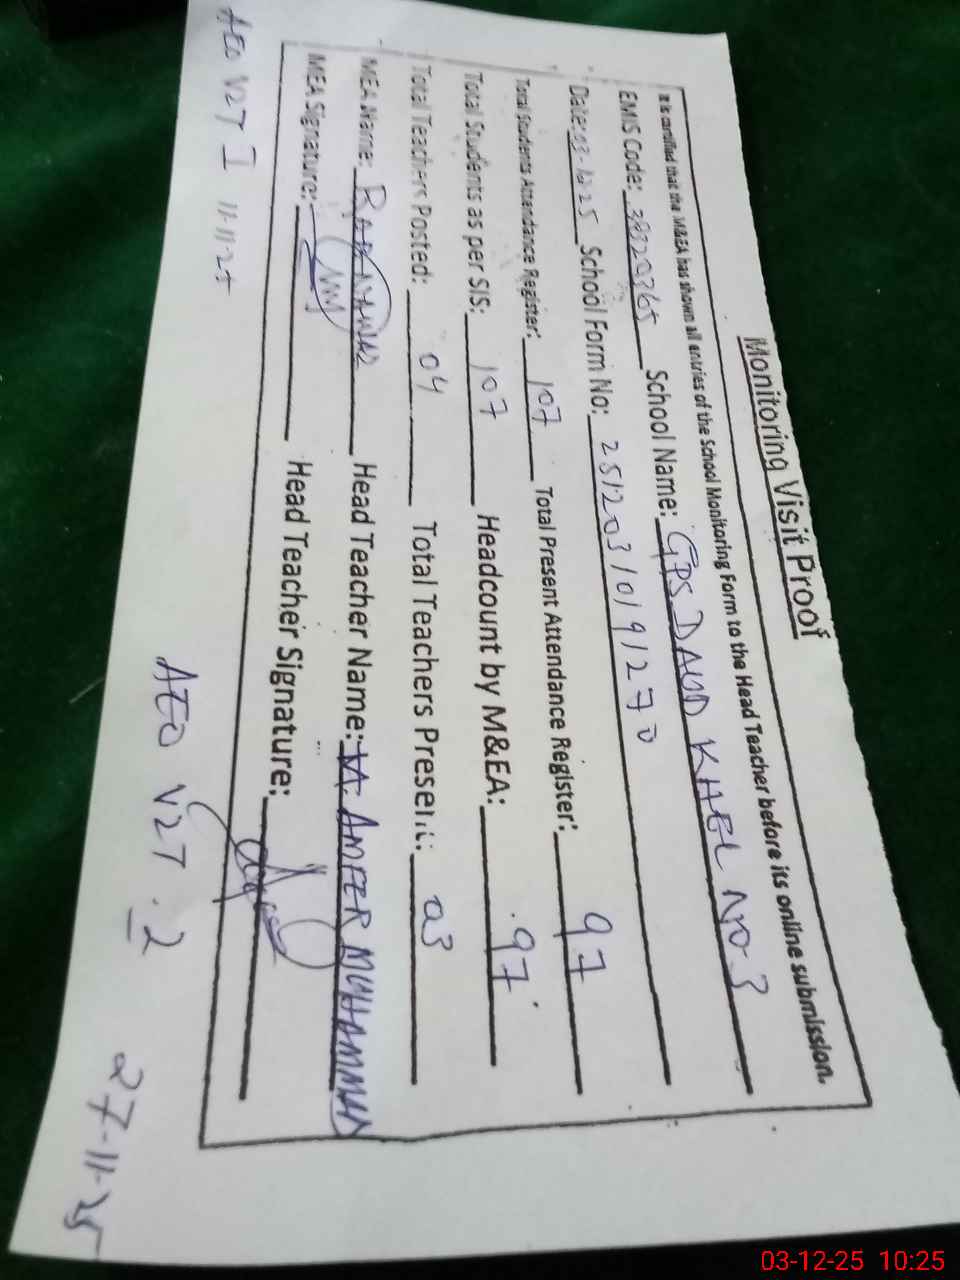 Monitoring Visit Proof
It is certified that the M&EA has shown all entries of the School Monitoring Form to the Head Teacher before its online submission.
EMIS Code: 38320365 School Name: GPS DAUD KHEL NO 3
Date: 03-12-25 School Form No: 25120310191270
Total Students Attendance Register: 107 Total Present Attendance Register: 97
Total Students as per SIS: 107 Headcount by M&EA: 97
Total Teachers Posted: 04 Total Teachers Present: 03
MEA Name: Head Teacher Name: AMEER MUHAMMAD
MEA Signature: Head Teacher Signature:
AEO V2T I 11-11-25
AEO V2T 2 27-11-25
03-12-25 10:25